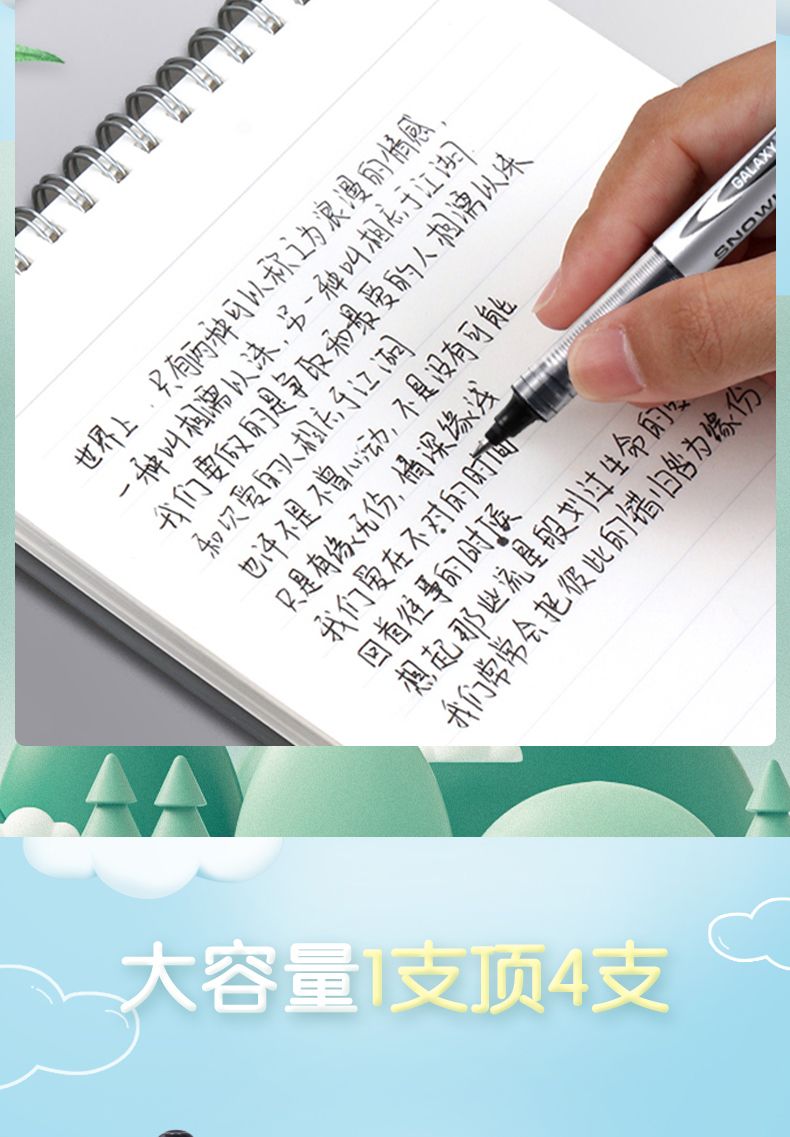 世界上，只有两种可以称之为浪漫的情感，
一种叫相濡以沫，另一种叫相忘于江湖
我们要做的是争取和最爱的人相濡以沫
和次爱的人相忘于江湖
也许不是不曾心动，不是没有可能
只是有缘无份，情深缘浅
我们爱在不对的时间
回首往事的时候
想起那些流星般划过生命的
我们常常会把彼此的错归咎为缘份
GALAXY
SNOW
大容量1支顶4支